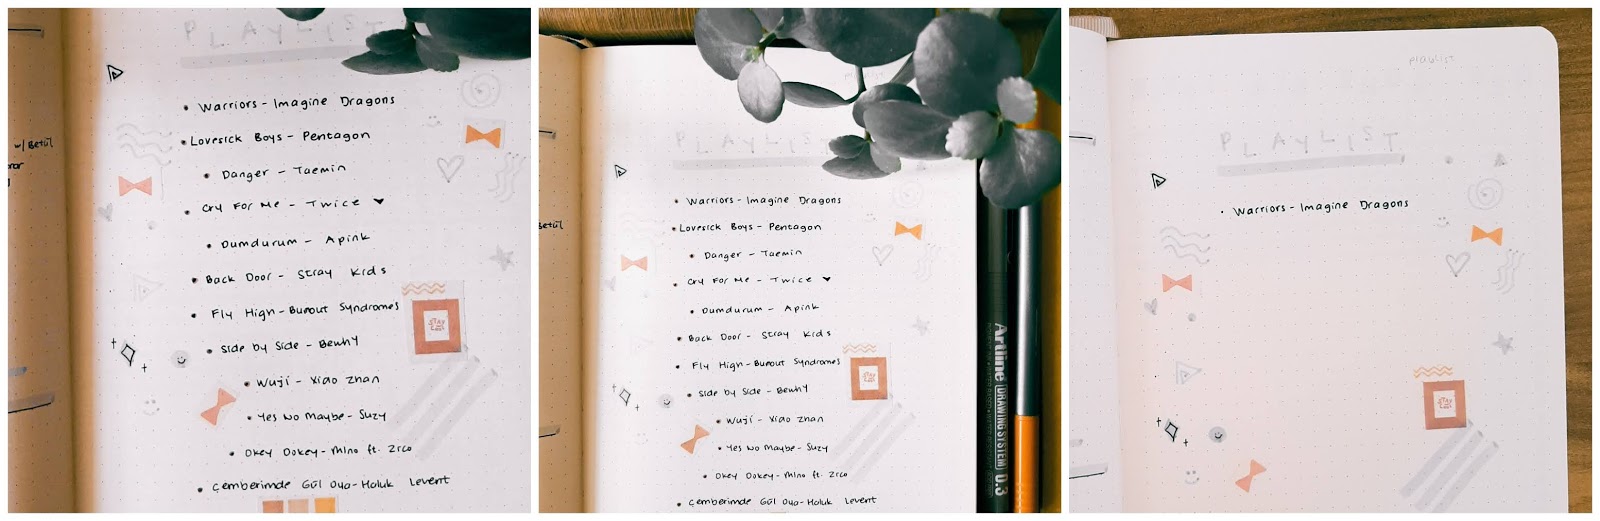 PLAYLIST
w/ Betül
• Warriors - Imagine Dragons
• Lovesick Boys - Pentagon
• Danger - Taemin
• Cry For Me - Twice
• Dumdurum - Apink
• Back Door - Stray Kids
• Fly High - Burnout Syndromes
• Side by Side - Bewhy
• Wuji - Xiao zhan
• Yes No Maybe - Suzy
• Okey Dokey - Mino ft. Zico
• Çemberimde Gül Oya - Haluk Levent
STAY
playlist
PLAYLIST
Betül
• Warriors - Imagine Dragons
• Lovesick Boys - Pentagon
• Danger - Taemin
• Cry For Me - Twice
• Dumdurum - Apink
• Back Door - Stray Kids
• Fly High - Burnout Syndromes
• Side by Side - Bewhy
• Wuji - Xiao zhan
• Yes No Maybe - Suzy
• Okey Dokey - Mino ft. Zico
• Çemberimde Gül Oya - Haluk Levent
STAY
Artline DRAWING SYSTEM 0.3
playlist
PLAYLIST
• Warriors - Imagine Dragons
STAY